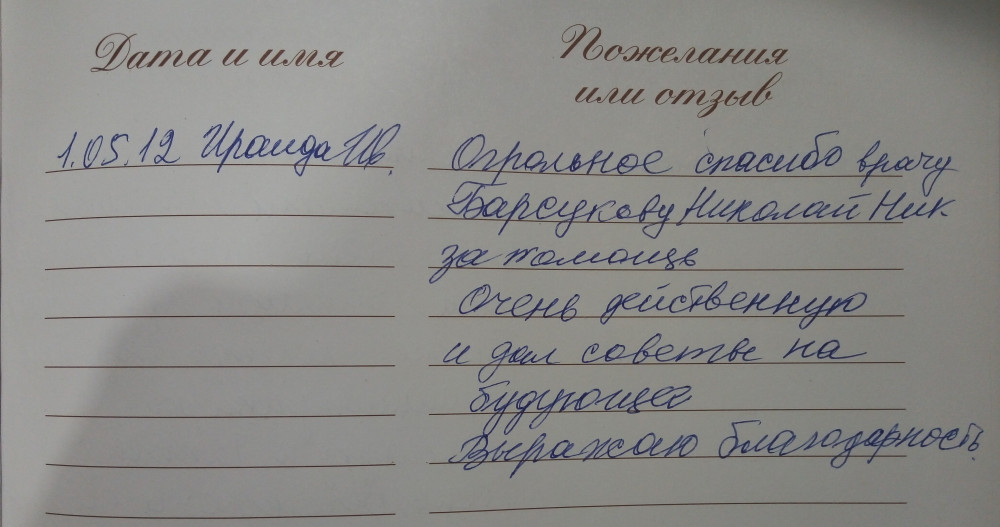 Дата и имя
Пожелания
или отзыв
1.05.12 Ираида Ив.
Огромное спасибо врачу
Барсукову Николай Ник.
за помощь
Очень действенную
и дал советы на
будующее
Выражаю благодарность.